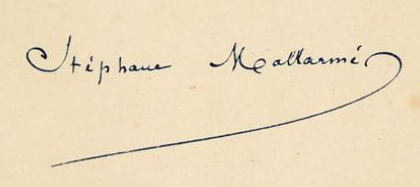 Stéphane Mallarmé